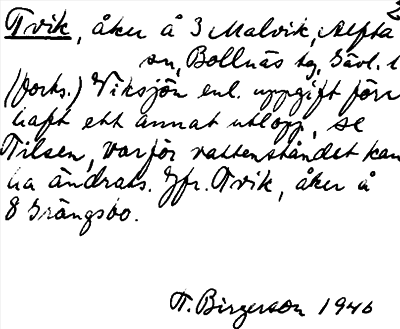 2
Tvik, åker å 3 Malvik, Alfta
sn, Bollnäs tg, Gävl. l
(Forts.) Viksjön enl. uppgift förr
haft ett annat utlopp, se
Tilsen, varför vattenståndet kan
ha ändrats. Jfr. Tvik, åker å
8 Grängsbo.
T. Birgerson 1946